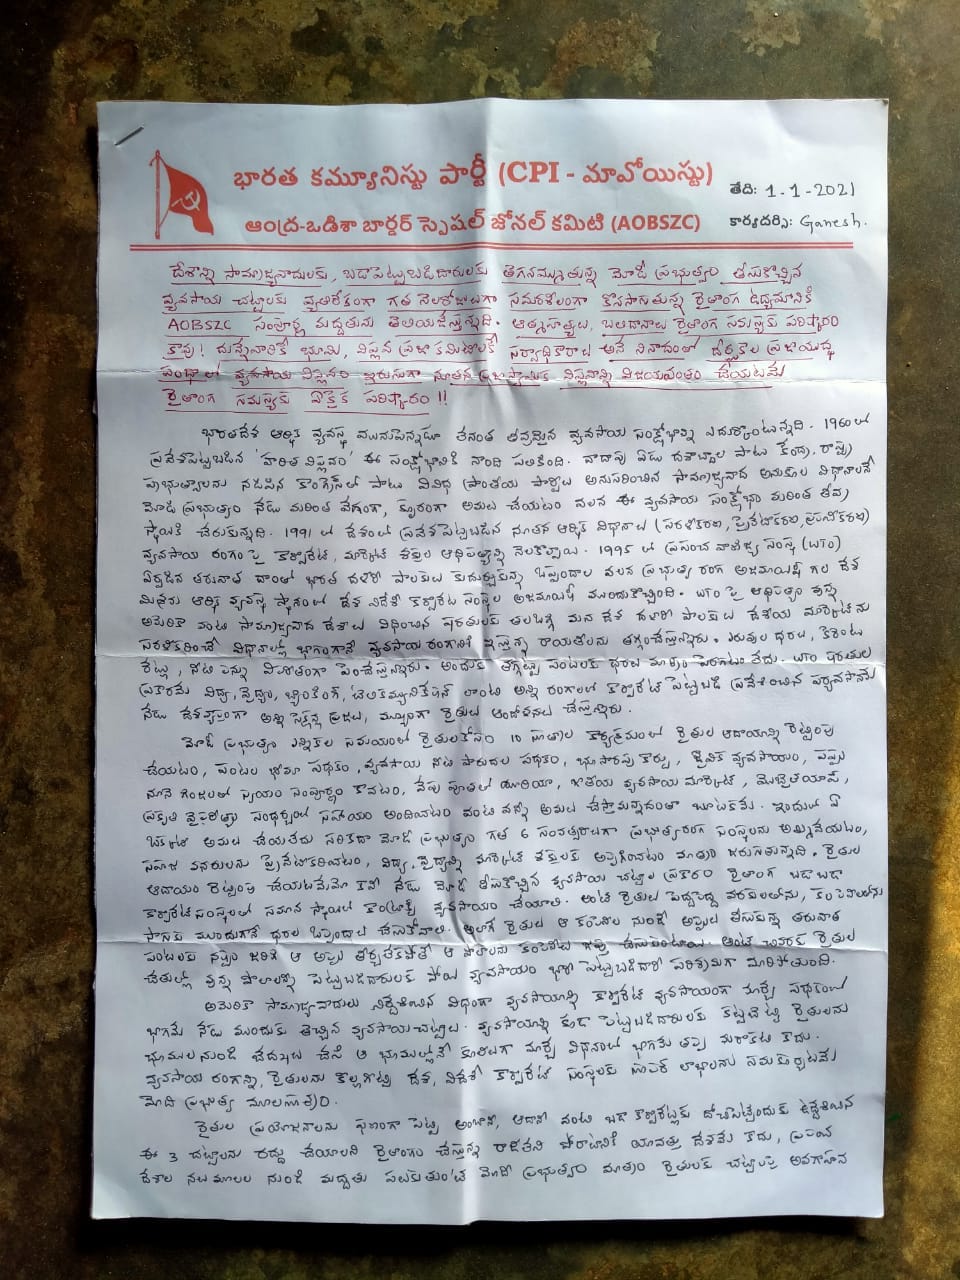 భారత కమ్యూనిస్టు పార్టీ (CPI - మావోయిస్టు)
తేది: 1-1-2021
ఆంధ్ర-ఒడిశా బార్డర్ స్పెషల్ జోనల్ కమిటి (AOBSZC)
కార్యదర్శి: Ganesh.
దేశాన్ని సామ్రాజ్యవాదులకు, బడాపెట్టుబడిదారులకు తెగనమ్ముతున్న మోడీ ప్రభుత్వం తీసుకొచ్చిన
వ్యవసాయ చట్టాలకు వ్యతిరేకంగా గత నెలరోజులుగా సమరశీలంగా కొనసాగుతున్న రైతాంగ ఉద్యమానికి
AOBSZC సంపూర్ణ మద్దతును తెలియజేస్తున్నది. ఆత్మహత్యలు, బలిదానాలు రైతాంగ సమస్యకు పరిష్కారం
కావు! దున్నేవారికే భూమి, విప్లవ ప్రజాకమిటీలకే సర్వాధికారాలు అనే నినాదంతో దీర్ఘకాల ప్రజాయుద్ధ
పంథాలో వ్యవసాయ విప్లవం ఇరుసుగా నూతన ప్రజాస్వామిక విప్లవాన్ని విజయవంతం చేయటమే
రైతాంగ సమస్యకు ఏకైక పరిష్కారం !!
భారతదేశ ఆర్థిక వ్యవస్థ మునుపెన్నడూ లేనంత తీవ్రమైన వ్యవసాయ సంక్షోభాన్ని ఎదుర్కొంటున్నది. 1960 లో
ప్రవేశపెట్టబడిన 'హరిత విప్లవం' ఈ సంక్షోభానికి నాంది పలికింది. దాదాపు ఏడు దశాబ్దాల పాటు కేంద్ర, రాష్ట్ర
ప్రభుత్వాలను నడిపిన కాంగ్రెస్‌తో పాటు వివిధ ప్రాంతీయ పార్టీలు అనుసరించిన సామ్రాజ్యవాద అనుకూల విధానాలనే
మోడీ ప్రభుత్వం నేడు మరింత వేగంగా, క్రూరంగా అమలు చేయటం వలన ఈ వ్యవసాయ సంక్షోభం మరింత తీవ్ర
స్థాయికి చేరుకున్నది. 1991 లో దేశంలో ప్రవేశపెట్టబడిన నూతన ఆర్థిక విధానాలు (సరళీకరణ, ప్రైవేటీకరణ, ప్రపంచీకరణ)
వ్యవసాయ రంగం పై కార్పొరేట్, మార్కెట్ శక్తుల ఆధిపత్యాన్ని నెలకొల్పాయి. 1995 లో ప్రపంచ వాణిజ్య సంస్థ (WTO)
ఏర్పడిన తరువాత దాంతో భారత దళారీ పాలకులు కుదుర్చుకున్న ఒప్పందాల వలన ప్రభుత్వ రంగ అజమాయిషీ గల దేశ
మిశ్రమ ఆర్థిక వ్యవస్థ స్థానంలో దేశ విదేశీ కార్పొరేట్ సంస్థల అజమాయిషీ ముందుకొచ్చింది. WTO పై ఆధిపత్యం వున్న
అమెరికా వంటి సామ్రాజ్యవాద దేశాలు విధించిన షరతులకు తలఒగ్గి మన దేశ దళారీ పాలకులు దేశీయ మార్కెట్‌ను
సరళీకరించే విధానాల్లో భాగంగానే వ్యవసాయ రంగానికి ఇస్తున్న రాయితీలను తగ్గించేస్తున్నారు. ఎరువుల ధరలు, కరెంటు
రేట్లు, నీటి పన్ను విపరీతంగా పెంచేస్తున్నారు. అందుకు తగ్గట్టు పంటలకు ధరలు మాత్రం పెరగటం లేదు. WTO షరతుల
ప్రకారమే విద్య, వైద్యం, బ్యాంకింగ్, టెలికమ్యూనికేషన్ లాంటి అన్ని రంగాలలో కార్పొరేట్ పెట్టుబడి ప్రవేశించిన పర్యవసానమే
నేడు దేశవ్యాప్తంగా అన్ని సెక్షన్ల ప్రజలు, ముఖ్యంగా రైతులు ఆందోళనలు చేస్తున్నారు.
మోడీ ప్రభుత్వం ఎన్నికల సమయంలో రైతులకోసం 10 సూత్రాల కార్యక్రమంలో రైతుల ఆదాయాన్ని రెట్టింపు
చేయటం, పంటల భీమా పథకం, వ్యవసాయ నీటి పారుదల పథకం, భూసారపు కార్డు, జైవిక వ్యవసాయం, పప్పు
నూనె గింజలలో స్వయం సంపూర్ణం కావటం, వేపు పూతతో యూరియా, జాతీయ వ్యవసాయ మార్కెట్, మొబైల్‌యాప్,
ప్రకృతి వైపరీత్యాల సందర్భంలో సహాయం అందించటం వంటి వన్నీ అమలు చేస్తామన్నదంతా బూటకమే. ఇందులో ఏ
ఒక్కటీ అమలు చేయలేదు సరికదా మోడీ ప్రభుత్వం గత 6 సంవత్సరాలుగా ప్రభుత్వరంగ సంస్థలను అమ్మివేయటం,
సహజ వనరులను ప్రైవేటీకరించటం, విద్య, వైద్యాన్ని మార్కెట్ శక్తులకు అప్పగించటం మాత్రం జరుగుతున్నది. రైతుల
ఆదాయం రెట్టింపు చేయటమేమో కానీ నేడు మోడీ తీసుకొచ్చిన వ్యవసాయ చట్టాల ప్రకారం రైతాంగం బడా బడా
కార్పొరేట్ సంస్థలతో సమాన స్థాయిలో కాంట్రాక్ట్ వ్యవసాయం చేయాలి. అంటే రైతులు పెద్దపెద్ద వర్తకులతోను, కంపెనీలతోను
సాగుకు ముందుగానే ధరల ఒప్పందాలు చేసుకోవాలి. అలాగే రైతులు ఆ కంపెనీల నుండి అప్పులు తీసుకున్న తరువాత
పంటలకు నష్టం జరిగి ఆ అప్పు తీర్చలేకపోతే ఆ పొలాలను కంపెనీలు జప్తు చేసుకుంటాయి. అంటే చివరకు రైతుల
చేతుల్లో వున్న పొలాలన్నీ పెట్టుబడిదారులకు పోయి వ్యవసాయం భారీ పెట్టుబడిదారీ పరిశ్రమగా మారిపోతుంది.
అమెరికా సామ్రాజ్యవాదులు నిర్దేశించిన విధంగా వ్యవసాయాన్ని కార్పొరేట్ వ్యవసాయంగా మార్చే పథకంలో
భాగమే నేడు ముందుకు తెచ్చిన వ్యవసాయ చట్టాలు. వ్యవసాయాన్ని కూడా పెట్టుబడిదారులకు కట్టబెట్టి రైతులను
భూముల నుండి బేదఖలు చేసి ఆ భూముల్లోనే కూలీలుగా మార్చే విధానంలో భాగమే తప్ప మరొకటి కాదు.
వ్యవసాయ రంగాన్ని, రైతులను కొల్లగొట్టి దేశ, విదేశీ కార్పొరేట్ సంస్థలకు సూపర్ లాభాలను సమకూర్చటమే
మోది ప్రభుత్వ మూలసూత్రం.
రైతుల ప్రయోజనాలను ఫణంగా పెట్టి అంబానీ, ఆదానీ వంటి బడా కార్పొరేట్లకు దోచిపెట్టేందుకు ఉద్దేశించిన
ఈ 3 చట్టాలను రద్దు చేయాలని రైతాంగం చేస్తున్న రాజీలేని పోరాటానికి యావత్తు దేశమే కాదు, ప్రపంచ
దేశాల నలుమూలల నుండి మద్దతు పలుకుతుంటే మోదీ ప్రభుత్వం మాత్రం రైతులకు చట్టాలపై అవగాహన